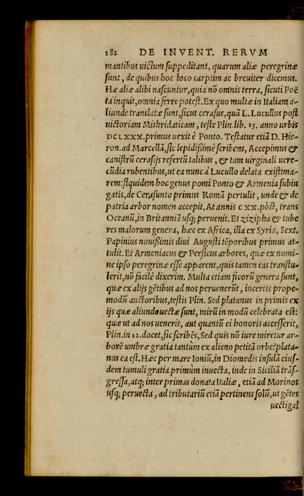 182 DE INVENT. RERVM
mantibus uictum suppeditant, quarum aliæ peregrinæ
sunt, de quibus hoc loco carptim ac breuiter dicemus.
Hæ aliæ alibi nascuntur, quia nō omnis terra, sicuti Poë
ta inquit, omnia ferre potest. Ex quo multæ in Italiam a-
liunde translatæ sunt, sicut cerasus, quā L. Lucullus post
uictoriam Mithridaticam, teste Plin. lib. 15. anno urbis
DCLXXX. primus uexit è Ponto. Testatur etiā D. Hie-
ron. ad Marcellā, sic lepidissimè scribens, Accepimus &
canistrū cerasijs refertū talibus, & tam uirginali uere-
cūdia rubentibus, ut ea nunc à Lucullo delata existima-
rem: siquidem hoc genus pomi Ponto & Armenia subiu
gatis, de Cerasunto primus Romā pertulit, unde & de
patria arbor nomen accepit. At annis cxx. pōst, trans
Oceanū, in Britanniā usq; peruenit. Et zizipha & tube
res malorum genera, hæc ex Africa, illa ex Syria, Sext.
Papinius nouissimis diui Augusti tēporibus primus at-
tulit. Et Armeniacus & Persicus arbores, quæ ex nomi-
ne ipso peregrinæ esse apparent, quis tamen eas transtu-
lerit, nō facilè dixerim. Multa etiam ficorū genera sunt,
quæ ex alijs gētibus ad nos peruenerūt, incertis prope-
modū auctoribus, testis Plin. Sed platanus in primis ex
ijs quæ aliunde uectæ sunt, mirū in modū celebrata est:
quæ ut ad nos uenerit, aut quantū ei honoris accesserit,
Plin. in 12. docet, sic scribēs, Sed quis nō iure miretur ar-
borē umbræ gratia tantùm ex alieno petitā orbe? plata-
nus ea est. Hæc per mare Ioniū, in Diomedis insulā eius-
dem tumuli gratia primùm inuecta, inde in Siciliā trās-
gressa, atq; inter primas donata Italiæ, etiā ad Morinos
usq; peruecta, ad tributariū etiā pertinens solū, ut gētes
uectigal